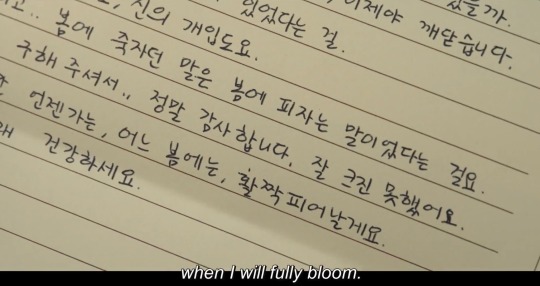 신의 개입도요.
있었다는 걸.
이제야 깨닫습니다.
봄에 죽자던 말은 봄에 피자는 말이었다는 걸요.
구해 주셔서.. 정말 감사합니다. 잘 크진 못했어요.
언젠가는, 어느 봄에는, 활짝 피어날게요.
건강하세요.
when I will fully bloom.